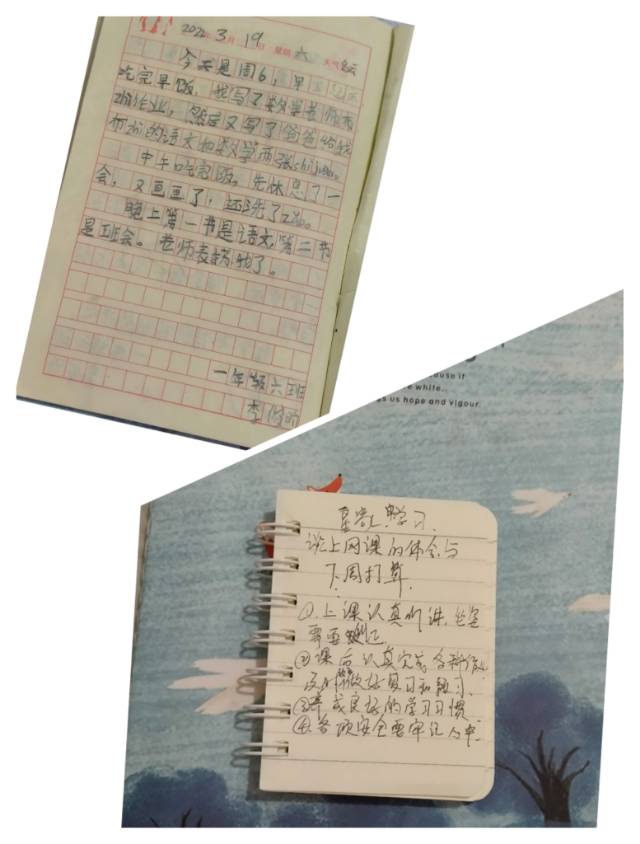 2022年3月19日 星期六 天气
今天是周6,早
吃完早饭,我写了数学老师
zhi作业,然后又写了爸爸给我
布zhi的语文和数学两张shijuan。
中午吃完饭。先休息了一
会,又画画了,还洗了zao。
晚上第一节是语文,第二节
是班会。老师表扬我了。
一年级六班
李
ause if
e white..
gs us hope and vigour.
学习.
谈上网课的体会与
下周打算.
①上课认真听讲.
需要
②课后认真完成各科作业
及时做好复习和预习.
③养成良好的学习习惯
④各项安全要牢记心中.